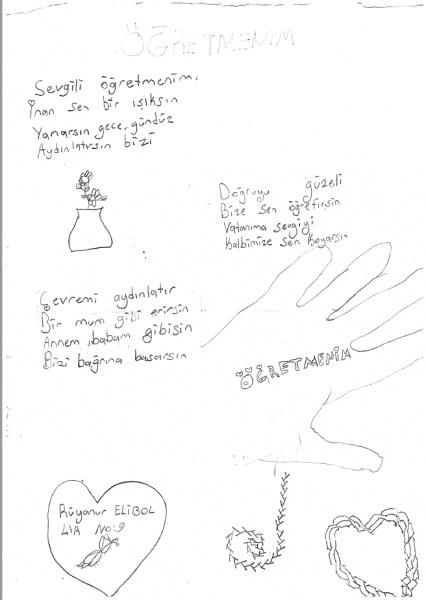 ÖĞRETMENİM
Sevgili öğretmenim,
İnan sen bir ışıksın
Yanarsın gece, gündüz
Aydınlatırsın bizi
Doğruyu güzeli
Bize sen öğretirsin
Vatanıma sevgiyi
Kalbimize sen koyarsın
Çevremi aydınlatır
Bir mum gibi erirsin
Annem, babam gibisin
Bizi bağrına basarsın
ÖĞRETMENİM
Rüyanur ELİBOL
No:9